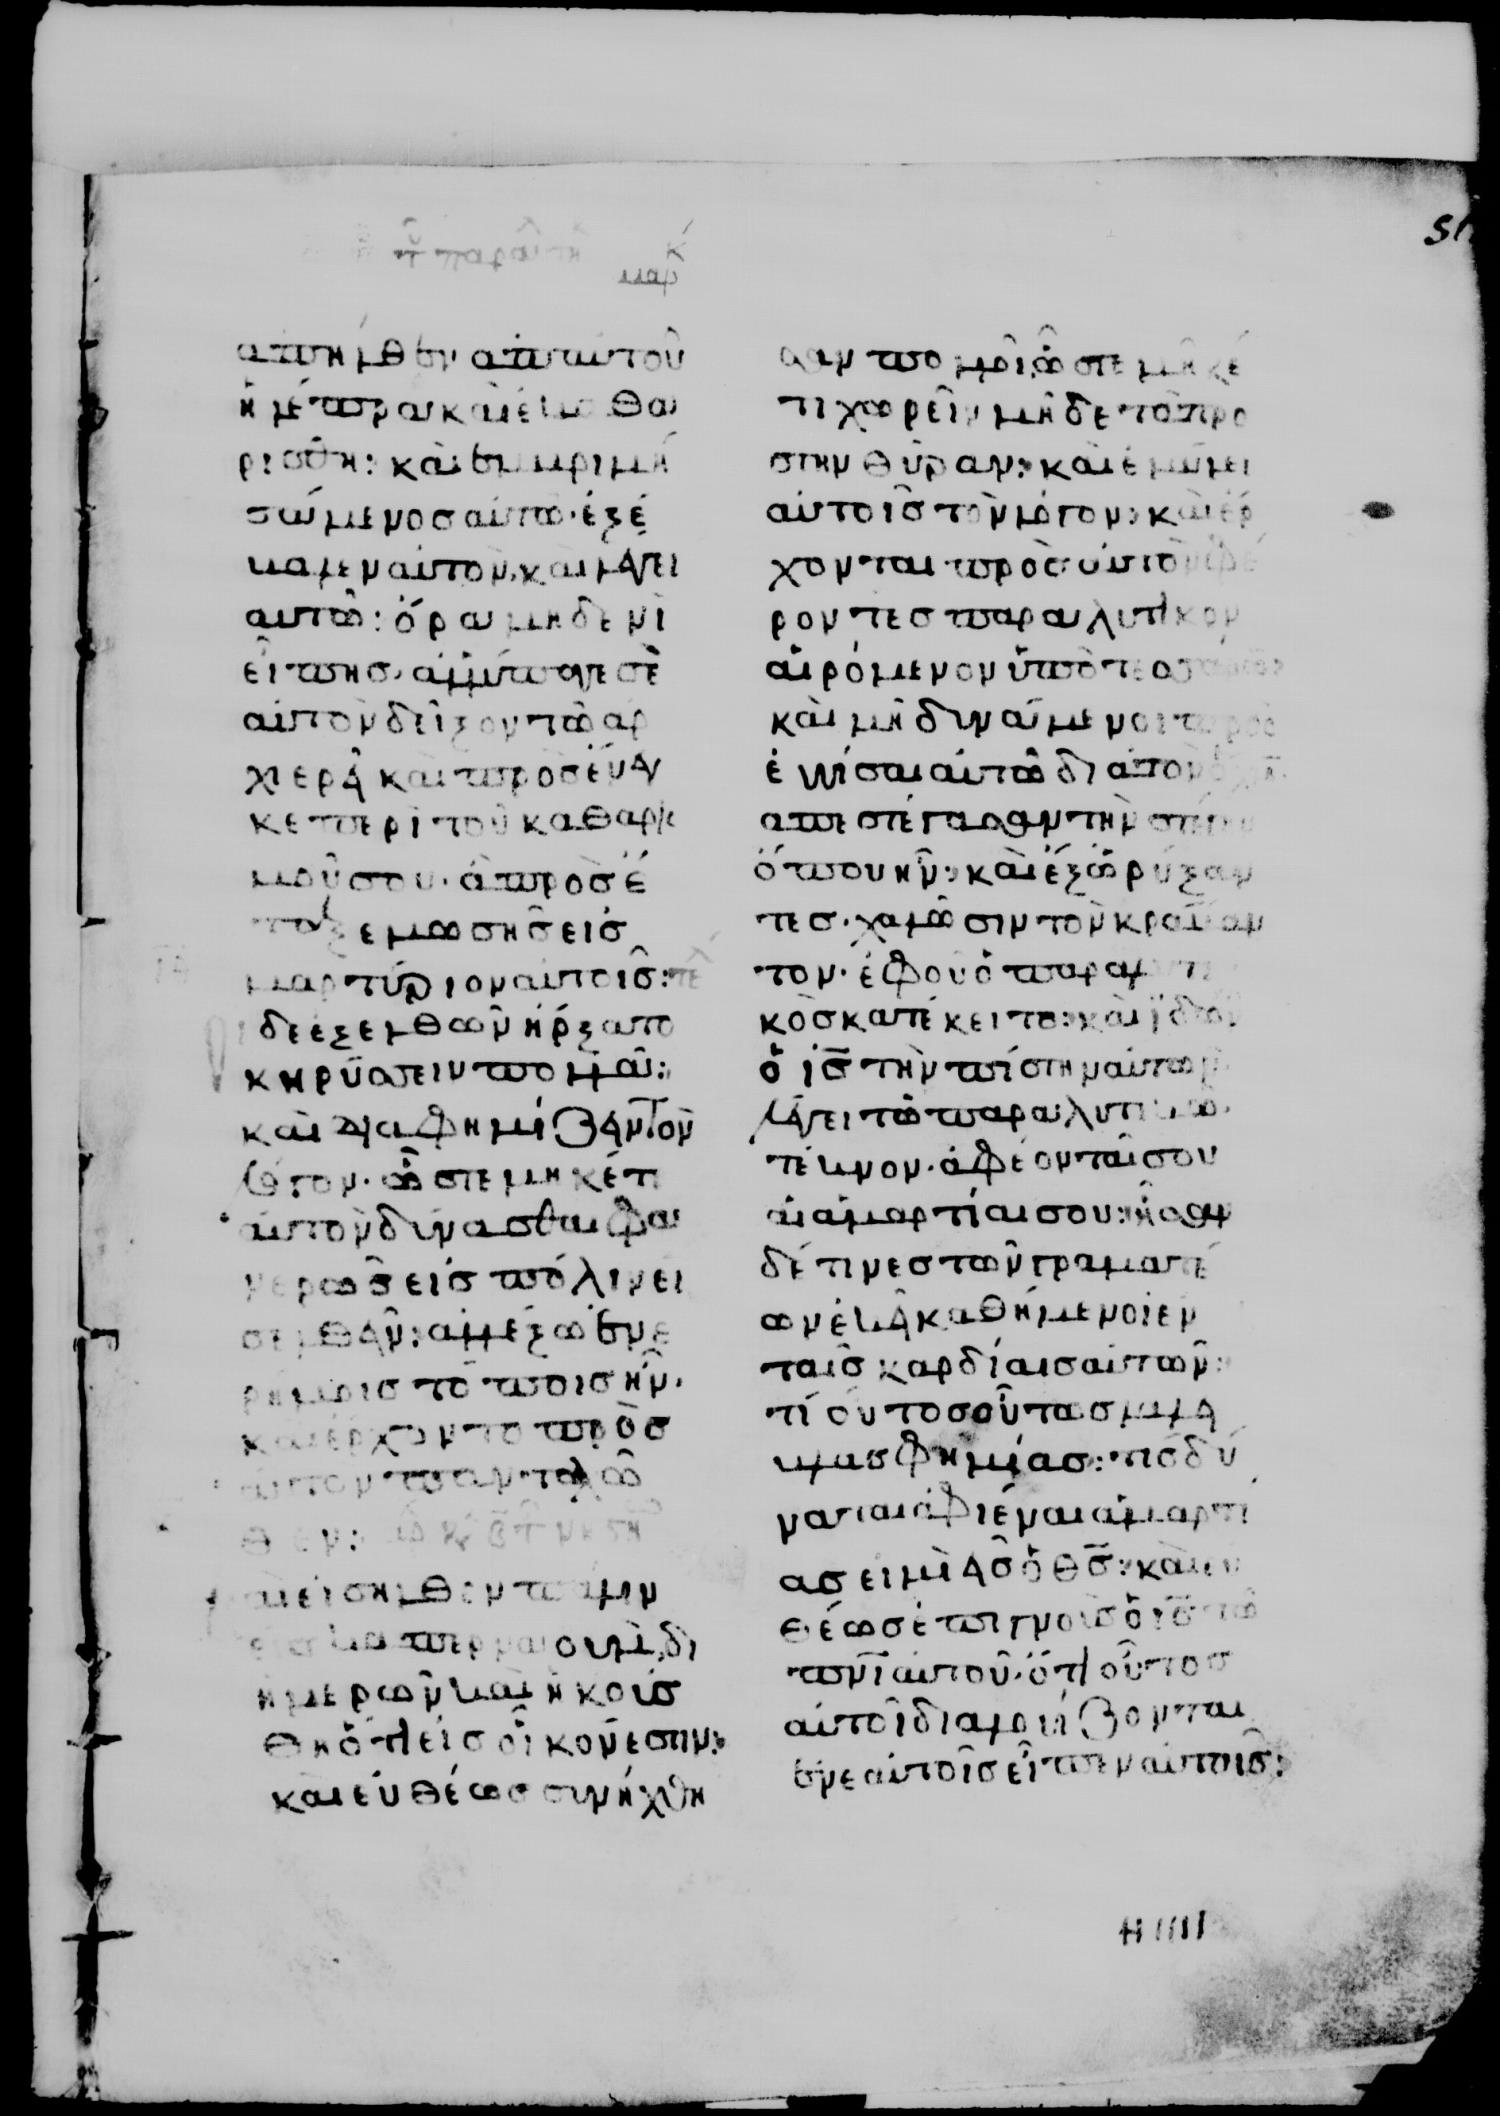 ἀπῆλθεν ἀπ αὐτοῦ
ἡ λέπρα καὶ ἐκαθα
ρίσθη: καὶ ἐμβριμη
σάμενος αὐτῶ· ἐξέ
βαλεν αὐτὸν, καὶ λέγει
αὐτῶ: ὅρα μηδενὶ
εἴπης· ἀλλ ὕπαγε σε
αὐτὸν δεῖξον τῶ ἀρ
χιερεῖ καὶ προσένεγ
κε περὶ τοῦ καθαρι
μοῦ σου· ἃ προσέ
ταξε μωσῆς εἰς
μαρτύριον αὐτοῖς:
δὲ ἐξελθὼν ἤρξατο
κηρύσσειν πολλὰ:
καὶ διαφημίζειν τὸν
λόγον· ὥστε μηκέτι
αὐτὸν δύνασθαι φα
νερῶς εἰς πόλιν εἰ
σελθεῖν: ἀλλ ἔξω ἐν ἐ
ρήμοις τόποις ἦν·
καὶ ἤρχοντο πρὸς
αὐτὸν πανταχῶ
θεν:
αὶ εἰσῆλθεν πάλιν
καπερναοὺμ, δι
ἡμερῶν καὶ ἠκούσ
θη ὅτι εἰς οἶκόν ἐστιν:
καὶ εὐθέως συνήχθη
σαν πολλοὶ, ὥστε μηκέ
τι χωρεῖν μηδὲ τὸ πρὸ
στην θύραν: καὶ ἐλάλει
αὐτοῖς τὸν λόγον: καὶ ἔρ
χονται πρὸς αὐτὸν φέ
ροντες παραλυτικὸν
αἰρόμενον ὑπὸ τεσσάρων:
καὶ μὴ δυνάμενοι προσ
εγγίσαι αὐτῶ διὰ τὸν ὄχλον
ἀπεστέγασαν τὴν στέγην
ὅπου ἦν: καὶ ἐξορύξαν
τες· χαλῶσιν τὸν κράβαν
τον· ἐφ οὗ ὁ παραλυτι
κὸς κατέκειτο: καὶ ἰδὼν
ὁ ις τὴν πίστην αὐτῶν
λέγει τῶ παραλυτικῶ·
τέκνον· ἀφέονταί σου
αἱ ἁμαρτίαι σου: ἦσαν
δέ τινες τῶν γραμματέ
ων ἐκεῖ καθήμενοι ἐν
ταῖς καρδίαις αὐτῶν:
τί οὗτος οὕτως λαλεῖ
βλασφημίας: τίς δύ
ναται ἀφιέναι ἁμαρτί
ας εἰ μὴ εἷς ὁ θς: καὶ εὐ
θέως ἐπιγνοὺς ὁ ις τῶ
πνι αὐτοῦ· ὅτι οὕτος
αὐτοὶ διαλογίζονται
ἐν ἑαυτοῖς εἶπεν αὐτοῖς: